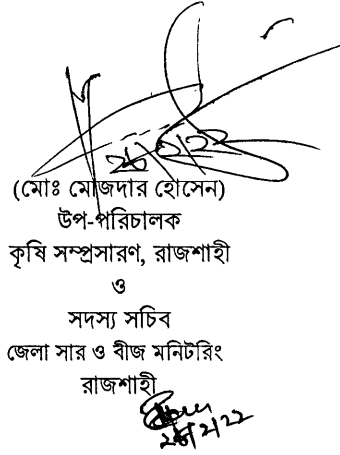 (মোঃ মোজদার হোসেন)
উপ-পরিচালক
কৃষি সম্প্রসারণ, রাজশাহী
ও
সদস্য সচিব
জেলা সার ও বীজ মনিটরিং
রাজশাহী